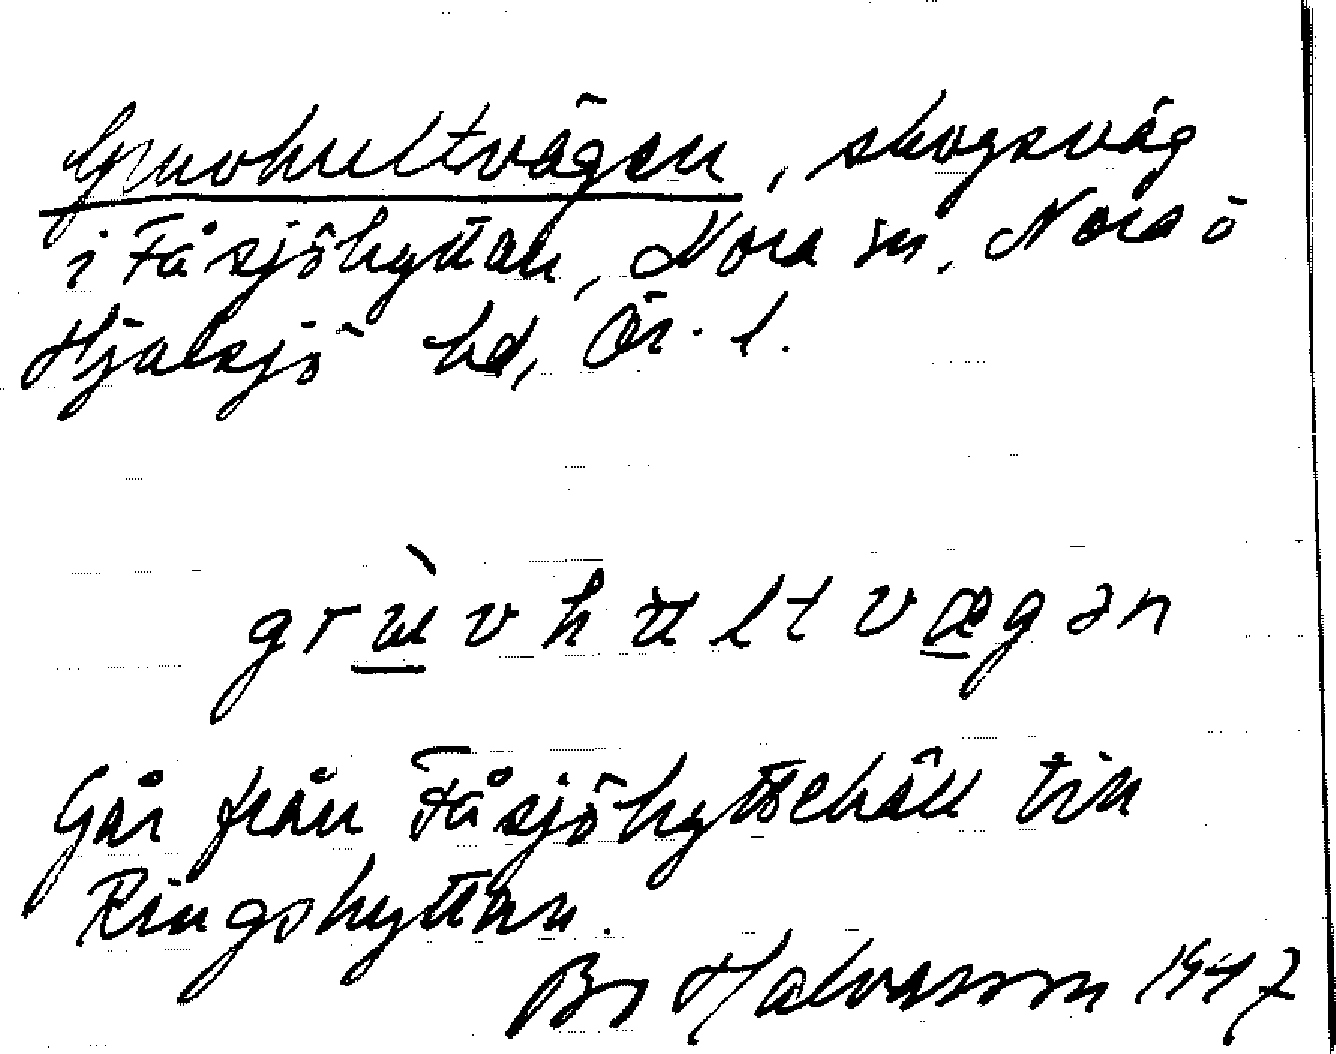 Gruvhultvägen, skogsväg
i Fåsjöhyttan, Nora sn, Nora ö
Hjulsjö hd, Ör. l.
grùvhultvægən
Går från Fåsjöhyttehåll till
Ringshyttan.
Bo Halvarsson 1947